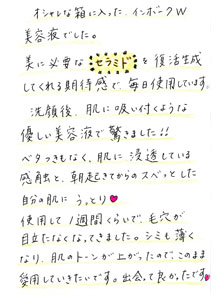 オシャレな箱に入った、インボークW
美容液でした。
美に必要なセラミドを復活生成
してくれる期待感で、毎日使用しています。
洗顔後、肌に吸い付くような
優しい美容液で驚きました!!
ベタつきもなく、肌に浸透している
感触と、朝起きてからのスベっとした
自分の肌にうっとり♥
使用して1週間くらいで、毛穴が
目立たなくなってきました。シミも薄く
なり、肌のトーンが上がったので、このまま
愛用していきたいです。出会えて良かったです。